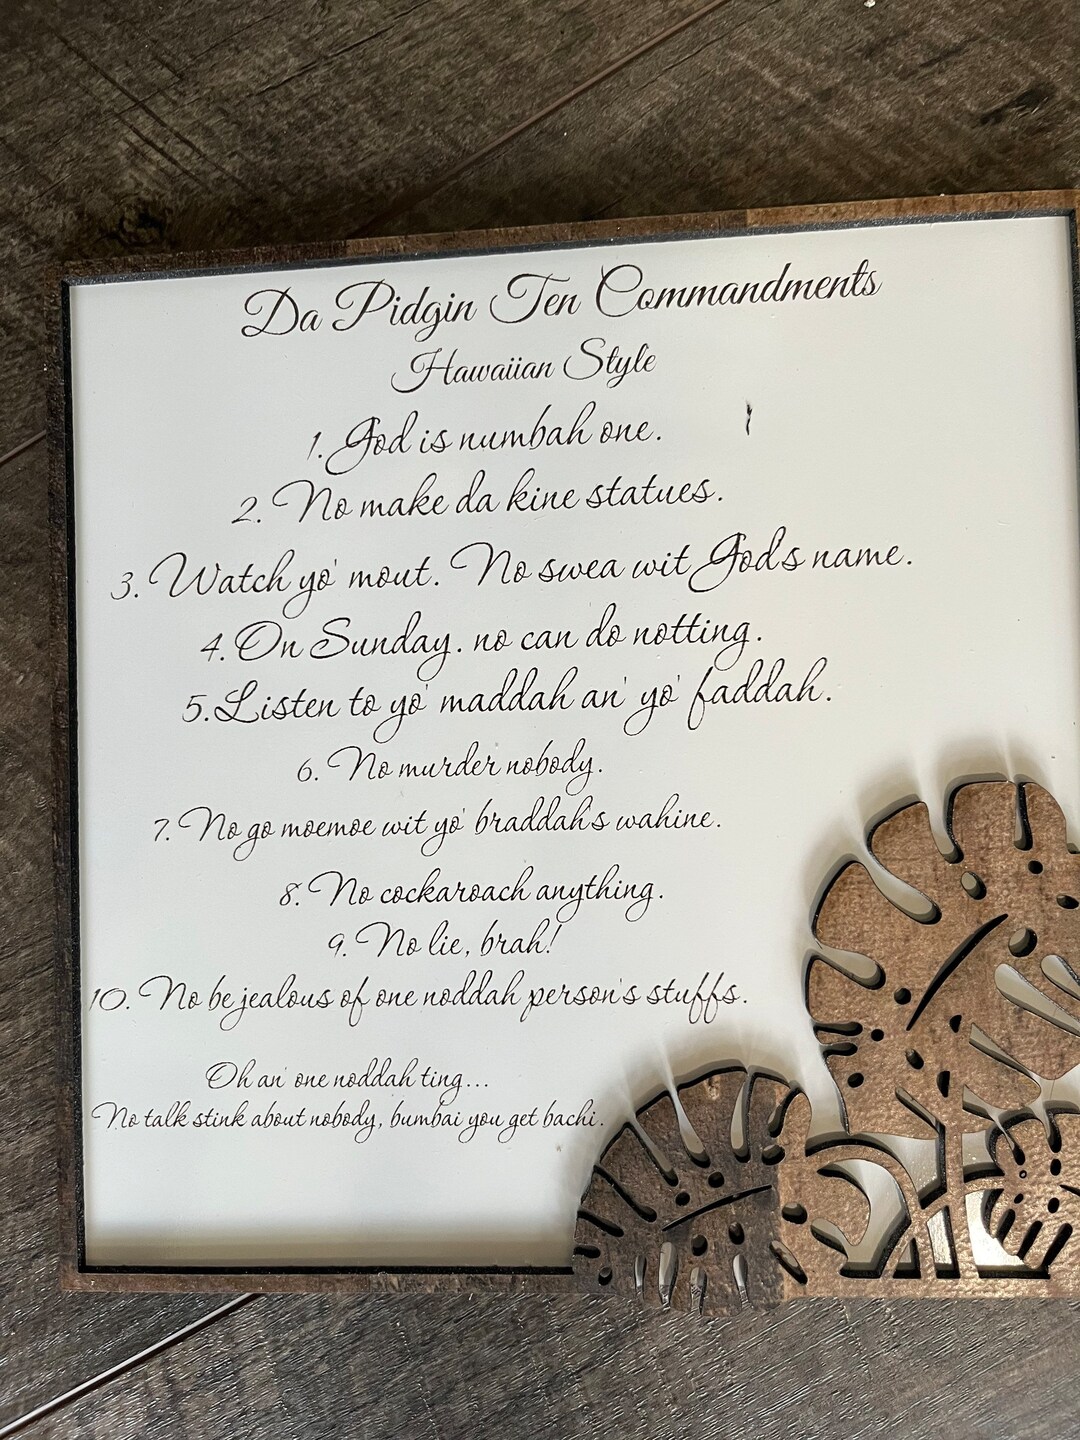 Da Pidgin Ten Commandments
Hawaiian Style
1. God is numbah one.
2. No make da kine statues.
3. Watch yo' mout. No swea wit God's name.
4. On Sunday. no can do notting.
5. Listen to yo' maddah an' yo' faddah.
6. No murder nobody.
7. No go moemoe wit yo' braddah's wahine.
8. No cockaroach anything.
9. No lie, brah!
10. No be jealous of one noddah person's stuffs.
Oh an' one noddah ting...
No talk stink about nobody, bumbai you get bachi.